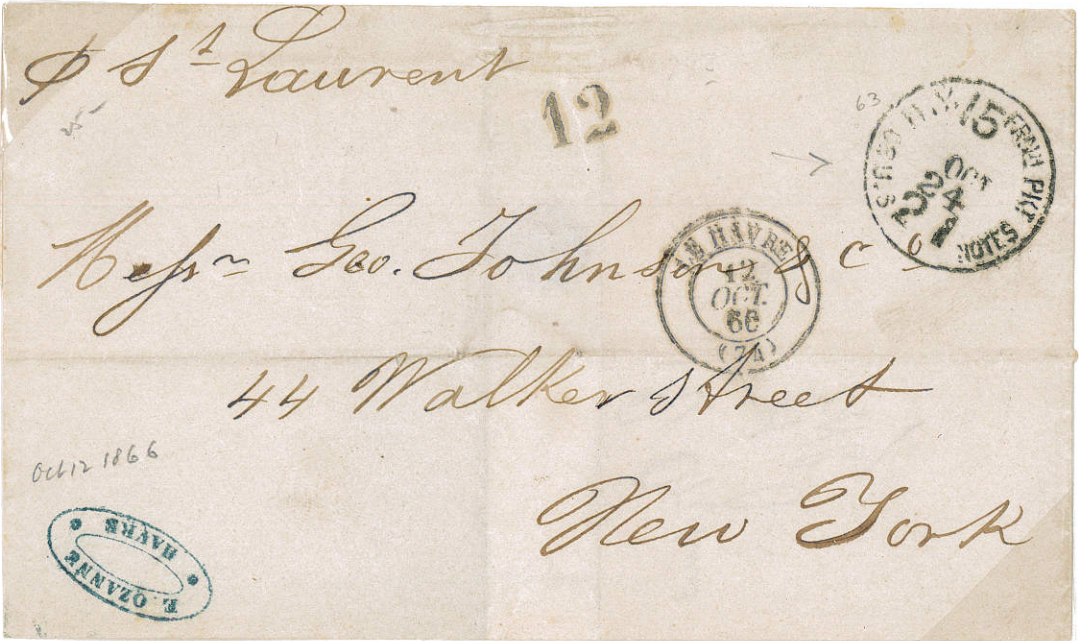 p St Laurent
12
63
15 FROM PKT
OCT
24
NOTES
Messrs Geo. Johnson & Co
LE HAVRE
12
OCT.
66
(74)
44 Walker Street
Oct 12 1866
New York
E. OZANNE
HAVRE